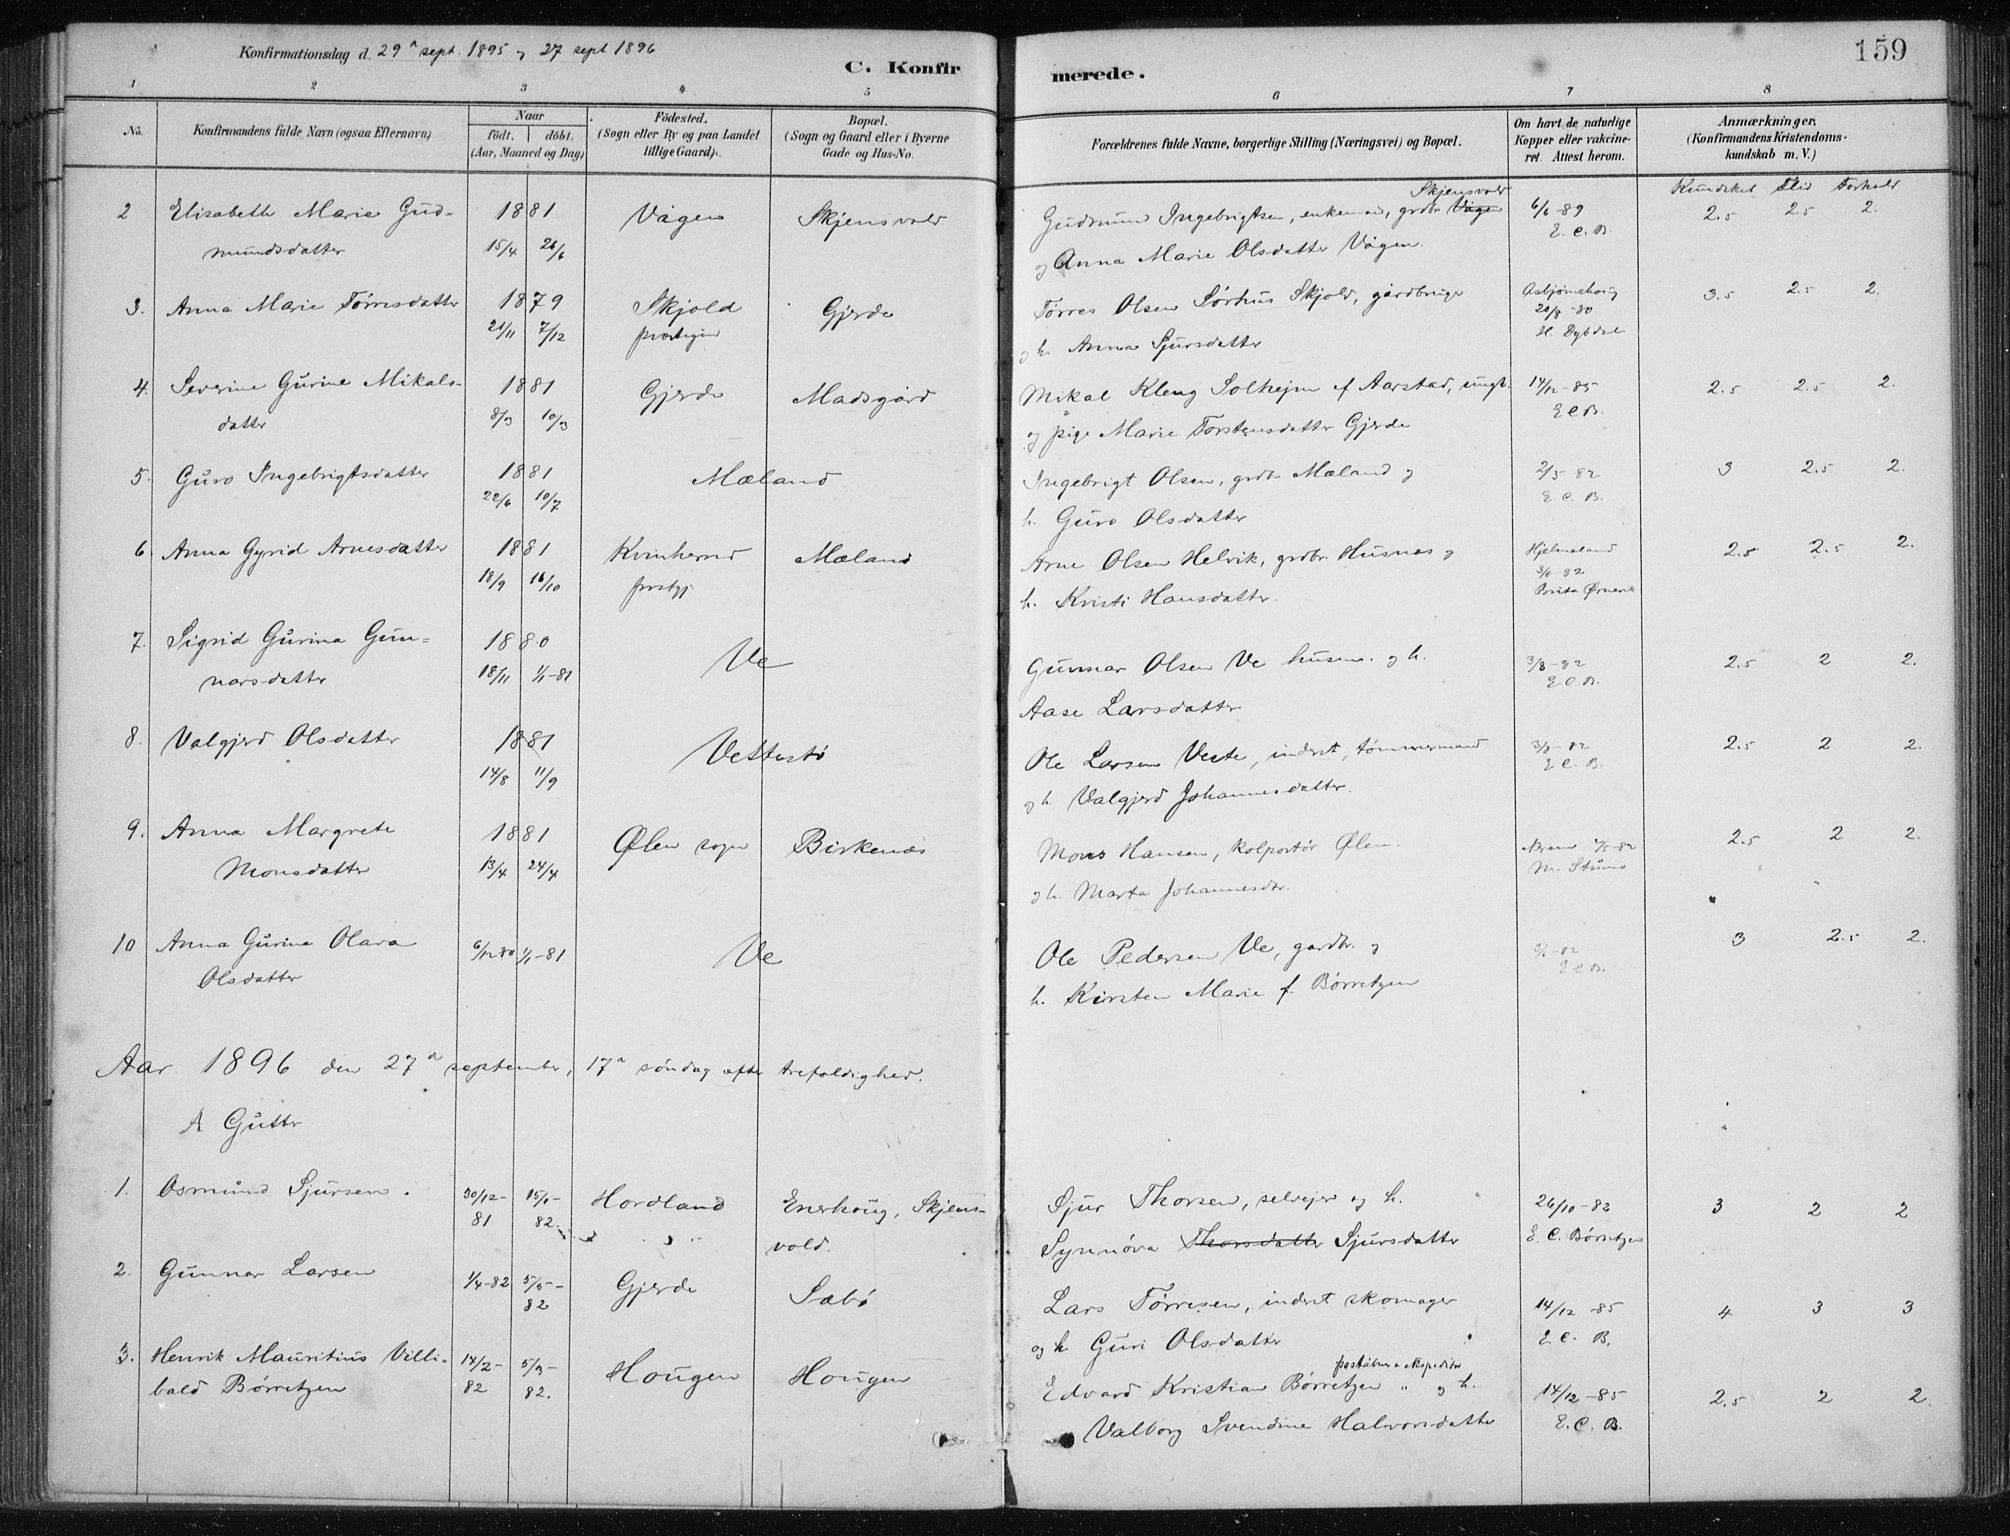 Konfirmationsdag d. 29n sept. 1895 og 27 sept 1896
C. Konfirmerede.
159
1 2 3 4 5 6 7 8
No. Konfirmandens fulde Navn (ogsaa Efternavn) Naar födt. döbt. (Aar, Maaned og Dag) Födested. (Sogn eller By og paa Landet tillige Gaard). Bopæl. (Sogn og Gaard eller i Byerne Gade og Hus-No. Forældrenes fulde Navne, borgerlige Stilling (Næringsvei) og Bopæl. Om havt de naturlige Kopper eller vakcineret. Attest herom. Anmærkninger. (Konfirmandens Kristendomskundskab m. V.)
Kundskab Flid Forhold
2 Elisabeth Marie Gud- 1881 Vågen Skjensvold Gudmund Ingebrigtsen, enkemand, grdbr. Vågen Skjensvold 6/6-89 2.5 2.5 2.
mundsdatter 15/4 26/6 og Anna Marie Olsdatter Vågen. E. C. B.
3. Anna Marie Törresdatter 1879 Skjold Gjerde Törres Olsen Sörhus Skjold, gårdbruger 3.5 2.5 2.
21/11 7/12 præstegjeld og h. Anna Sjursdatter 20/8-80 H. Dybdal
4. Severine Gurine Mikals- 1881 Gjerde Madsgård Mikal Kleng Solhejm f Aarstad, ungk. 14/12-85 2.5 2.5 2.
datter 8/3 10/3 og pige Marie Torstensdatter Gjerde E C B.
5. Guro Ingebrigtsdatter 1881 Mæland Ingebrigt Olsen, grdbr. Mæland og 2/5-82 3 2.5 2.
22/6 10/7 h. Guro Olsdatter E. C. B.
6 Anna Gyrid Arnesdatter 1881 Kvinherred Mæland Arne Olsen Helvik, grdbr. Husnes og Hjelmeland 2.5 2.5 2.
18/9 16/10 prstgj. h. Kristi Hansdatter. 3/6-82
7. Sigrid Gurina Gun- 1880 Ve Gunnar Olsen Ve husm. og h. 3/8-82 2.5 2 2.
narsdatter 18/11 1/1-81 Aase Larsdatter E C B.
8. Valgjerd Olsdatter 1881 Vettestö Ole Larsen Veste, inderst, tömmermand 3/8-82 2.5 2 2.
14/8 11/9 og h. Valgjerd Johannesdatter. E C. B.
9. Anna Margrete 1881 Ølen sogn Birkenæs Mons Hansen, kolportör Ølen. 2.5 2 2.
Monsdatter 13/4 24/4 og h. Marta Johannesdtr.
10 Anna Gurine Olava 6/12-80 1/1-81 Ve Ole Pedersen Ve, gardbr. og 3 2.5 2.
Olsdatter h. Kirsten Marie f. Börretzen E C B.
Aar 1896 den 27d september, 17n söndag efter trefoldighed.
A Gutter
1. Osmund Sjursen. 30/12- 15/1- Hordland Enerhoug, Skjens- Sjur Thorsen, selvejer og h. 26/10-82 3 2 2
81 82. vold. Synnöva Thorsdatter Sjursdatter E. C. Börretzen
2. Gunnar Larsen 1/4-82 5/5- Gjerde Sæbö Lars Törresen, inderst skomager 14/12-85 4 3 3
82 og h Guri Olsdatter E. C. B.
3. Henrik Mauritius Villi- 14/2- 5/3- Hougen Hougen Edvard Kristian Börretzen poståbner & ekspeditör og h. 14/12-85 2.5 2 2.
bald Börretzen 82 82. Valborg Svendine Halvorsdatter E. C. B.